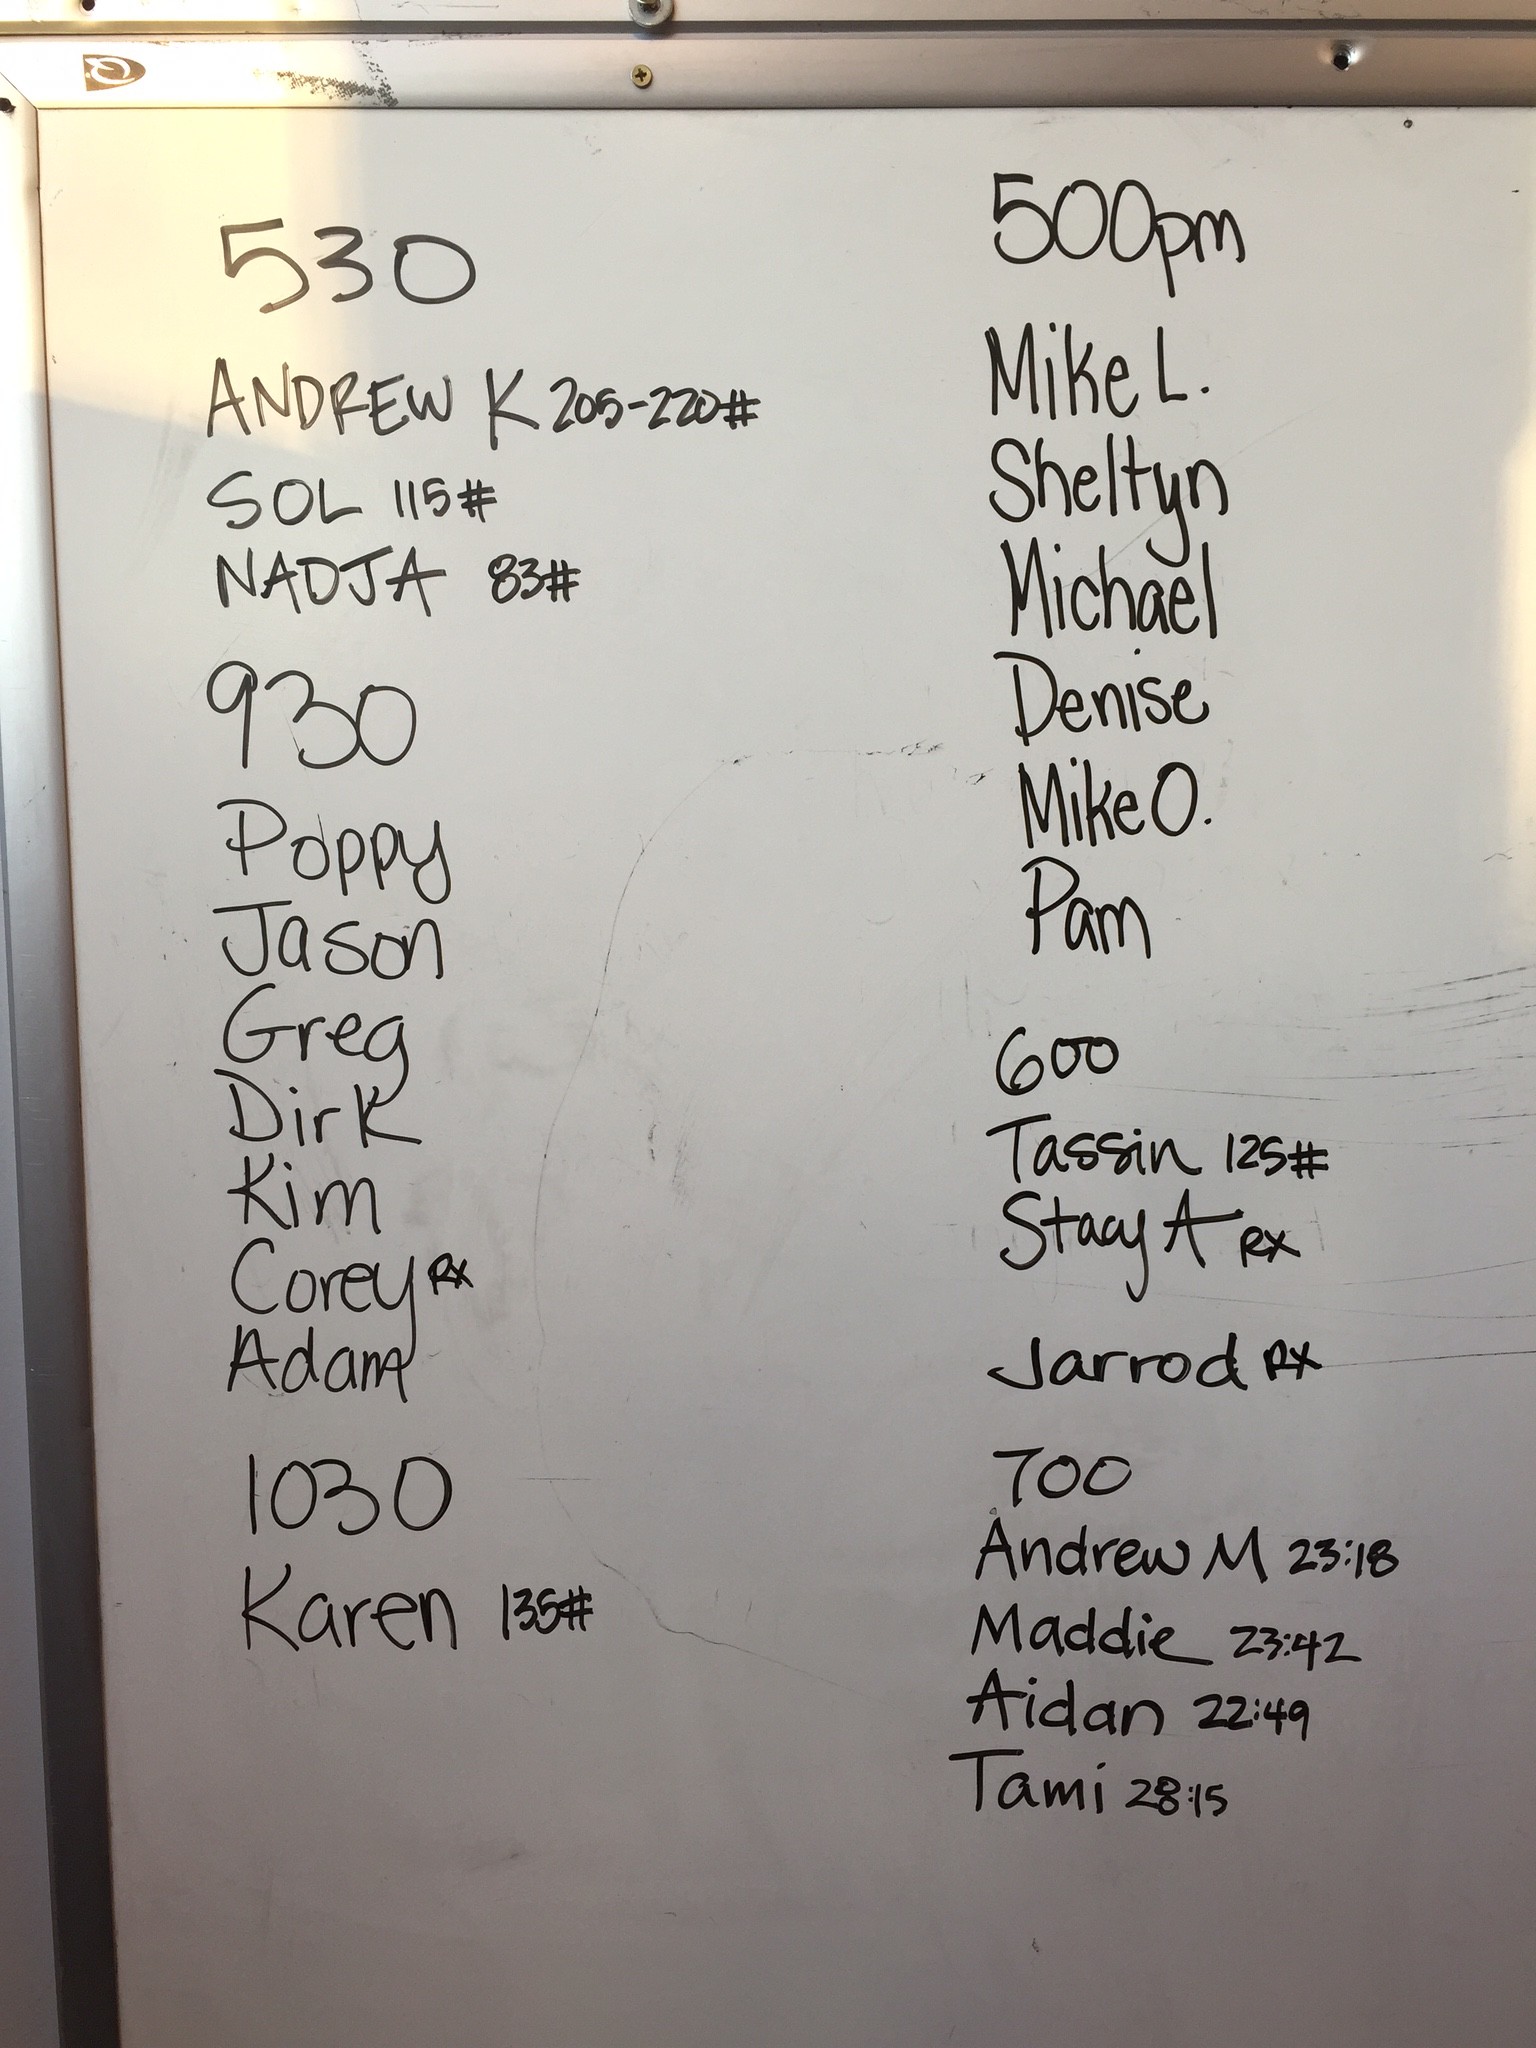 530
ANDREW K 205-220#
SOL 115#
NADJA 83#
930
Poppy
Jason
Greg
Dirk
Kim
Corey RX
Adam
1030
Karen 135#
500pm
Mike L.
Sheltyn
Michael
Denise
Mike O.
Pam
600
Tassin 125#
Stacy A RX
Jarrod RX
700
Andrew M 23:18
Maddie 23:42
Aidan 22:49
Tami 28:15